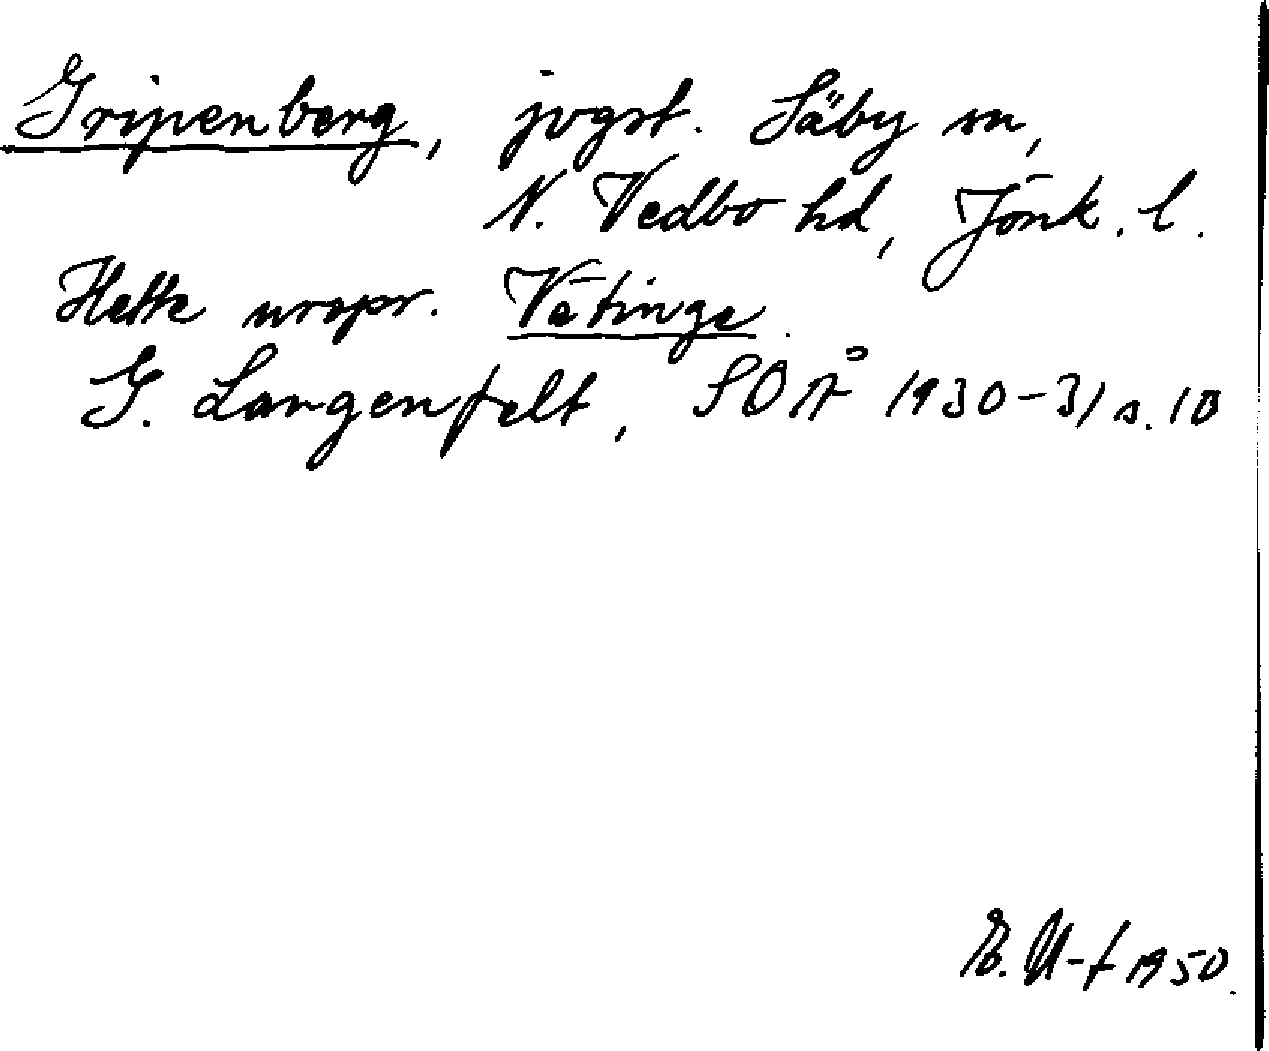 Gripenberg, jvgst. Säby sn,
N. Vedbo hd, Jönk. l.
Hette urspr. Vätinge.
G. Langenfelt, SOÅ 1930-31 s. 10
1950.